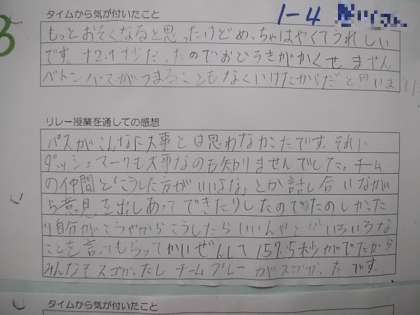 タイムから気が付いたこと
1-4
もっとおそくなると思ったけどめっちゃはやくてうれしい
です。
バトンパスがつまることもなくいけたからだと思いま
リレー授業を通しての感想
パスがこんなに大事とは思わなかったです。それに
ダッシュマークも大事なのも知りませんでした。チーム
の仲間と「こうした方がいいよな」とか話し合いなが
ら意見を出しあってできたりしたのでたのしかった
自分がこうやからこうしたらいいんやとかいろいろな
ことを言ってもらってかいぜんして157.5秒がでたから
みんなもスゴかったしチームプレーがスゴかったです。
タイムから気が付いたこと